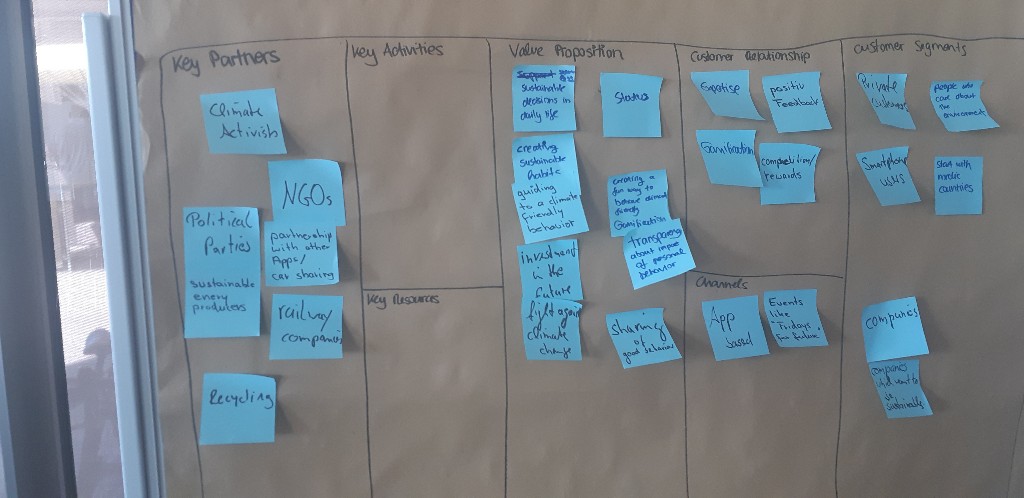 Key Partners
Climate
Activish
NGOs
Political
Parties
sustainable
enery
produkers
partnership
with other
Apps/
car sharing
railway
companies
Recycling
Key Activities
Key Resources
Value Proposition
sustainable
decisions in
daily life
Status
creating
sustainable
habits
guiding
to a climate
friendly
behavior
creating a
fun way to
behave
Gamification
transparency
about impac
of personal
behavior
investment
in the
future
fight again
climate
change
sharing
of
good behavior
Customer Relationship
Expertise
positiv
Feedback
Gamification
competition/
rewards
Channels
App
based
Events
like
"Fridays
for future"
Customer Segments
Private
People who
care about
the
environment
Smartphone
users
Start with
nordic
countries
companies
companies
want to
sustainable